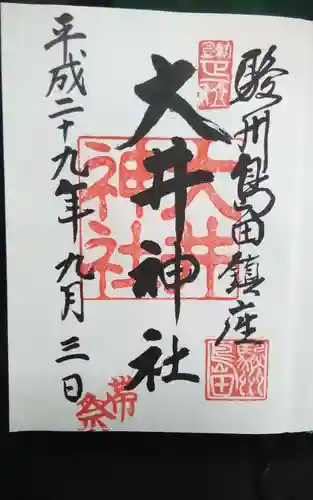 駿州島田鎮座
大井神社
平成二十九年九月三日
大井神社
駿州島田
帯祭